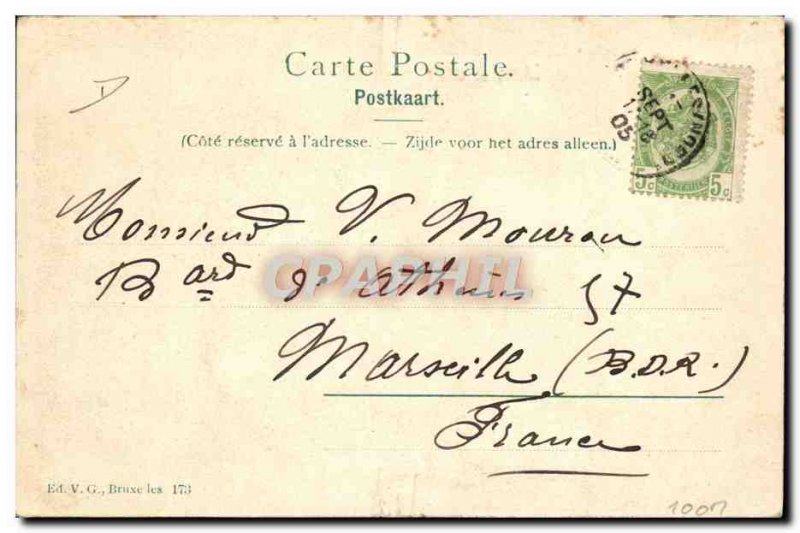 Carte Postale.
Postkaart.
(Côté réservé à l'adresse. — Zijde voor het adres alleen.)
SEPT
05
5c 5c
Monsieur V. Mouron
Bard d'Athènes 57
Marseille (B.D.R.)
France
CPASHIL
Ed. V. G., Bruxelles 173